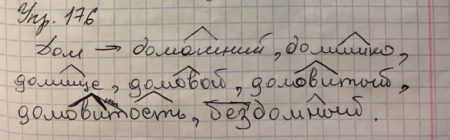 Упр. 176
Дом → домашний, домишко,
домище, домовой, домовитый,
домовитость, бездомный.